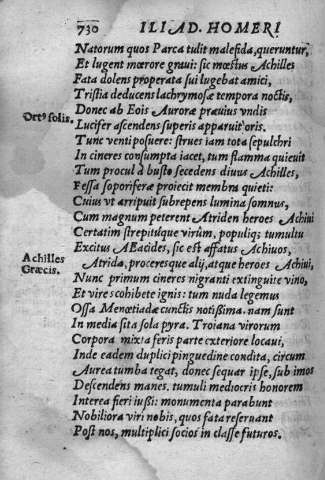 730 ILIAD. HOMERI
Natorum quos Parca tulit malefida, queruntur,
Et lugent mœrore graui: sic mœstus Achilles
Fata dolens properata sui lugebat amici,
Tristia deducens lachrymosæ tempora noctis,
Donec ab Eois Auroræ præuius vndis
Ortꝰ solis.
Lucifer ascendens superis apparuit oris.
Tunc venti posuere: strues iam tota sepulchri
In cineres consumpta iacet, tum flamma quieuit
Tum procul à busto secedens diuus Achilles,
Fessa soporiferæ proiecit membra quieti:
Cuius vt arripuit subrepens lumina somnus,
Cum magnum peterent Atriden heroes Achiui
Certatim strepitúque virûm, populíq; tumultu
Excitus AEacides, sic est affatus Achiuos,
Achilles
Græcis.
Atrida, proceresque alij, atque heroes Achiui,
Nunc primum cineres nigranti extinguite vino,
Et vires cohibete ignis: tum nuda legemus
Ossa Menœtiadæ cunctis notißima. nam sunt
In media sita sola pyra. Troiana virorum
Corpora mixta feris parte exteriore locaui,
Inde eadem duplici pinguedine condita, circum
Aurea tumba tegat, donec sequar ipse, sub imos
Descendens manes. tumuli mediocris honorem
Interea fieri iußi: monumenta parabunt
Nobiliora viri nobis, quos fata reseruant
Post nos, multiplici socios in classe futuros.